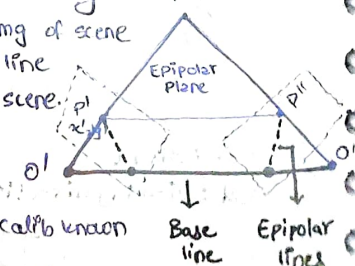 mg of scene
line
scene.
Epipolar
Plane
P'
x'
P"
O'
O'
calib known
Base
line
Epipolar
lines